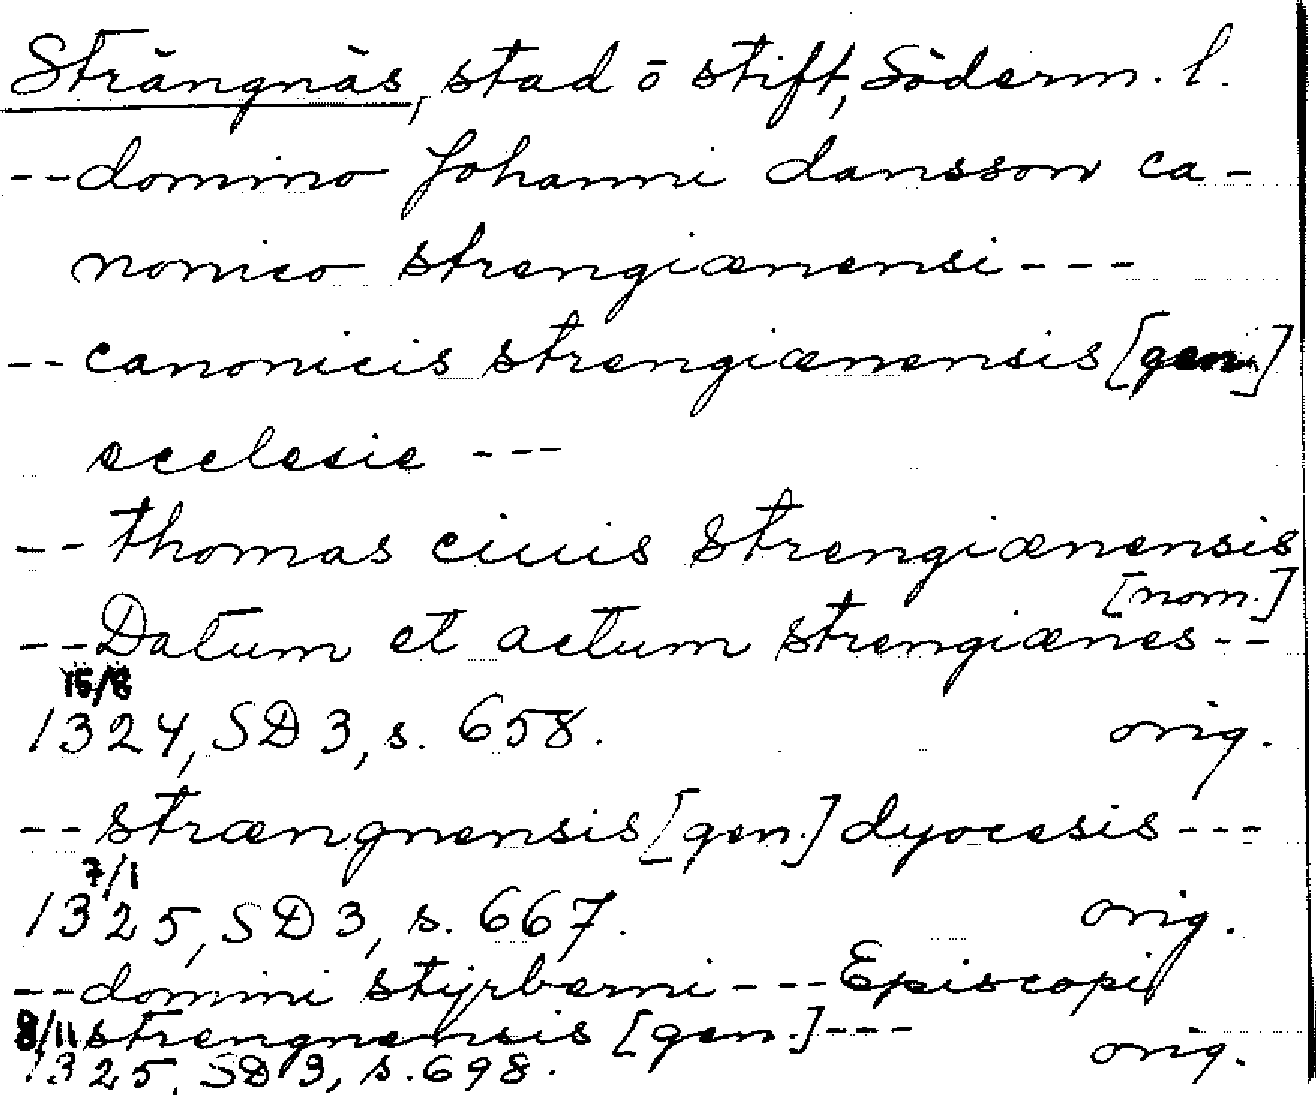 Strängnäs, stad o stift, Söderm. l.
-- domino Johanni dansson ca-
nonico strengiænensi ---
-- canonicis strengiænensis [gen.]
ecclesie ---
-- thomas ciuis Strengiænensis
[nom.]
-- Datum et actum strengiænes --
15/8
1324, SD 3, s. 658. orig.
-- strængnensis [gen.] dyocesis ---
7/1
1325, SD 3, s. 667. orig.
-- domini styrberni --- Episcopi
8/11 strengnensis [gen.] ---
1325, SD 3, s. 698. orig.